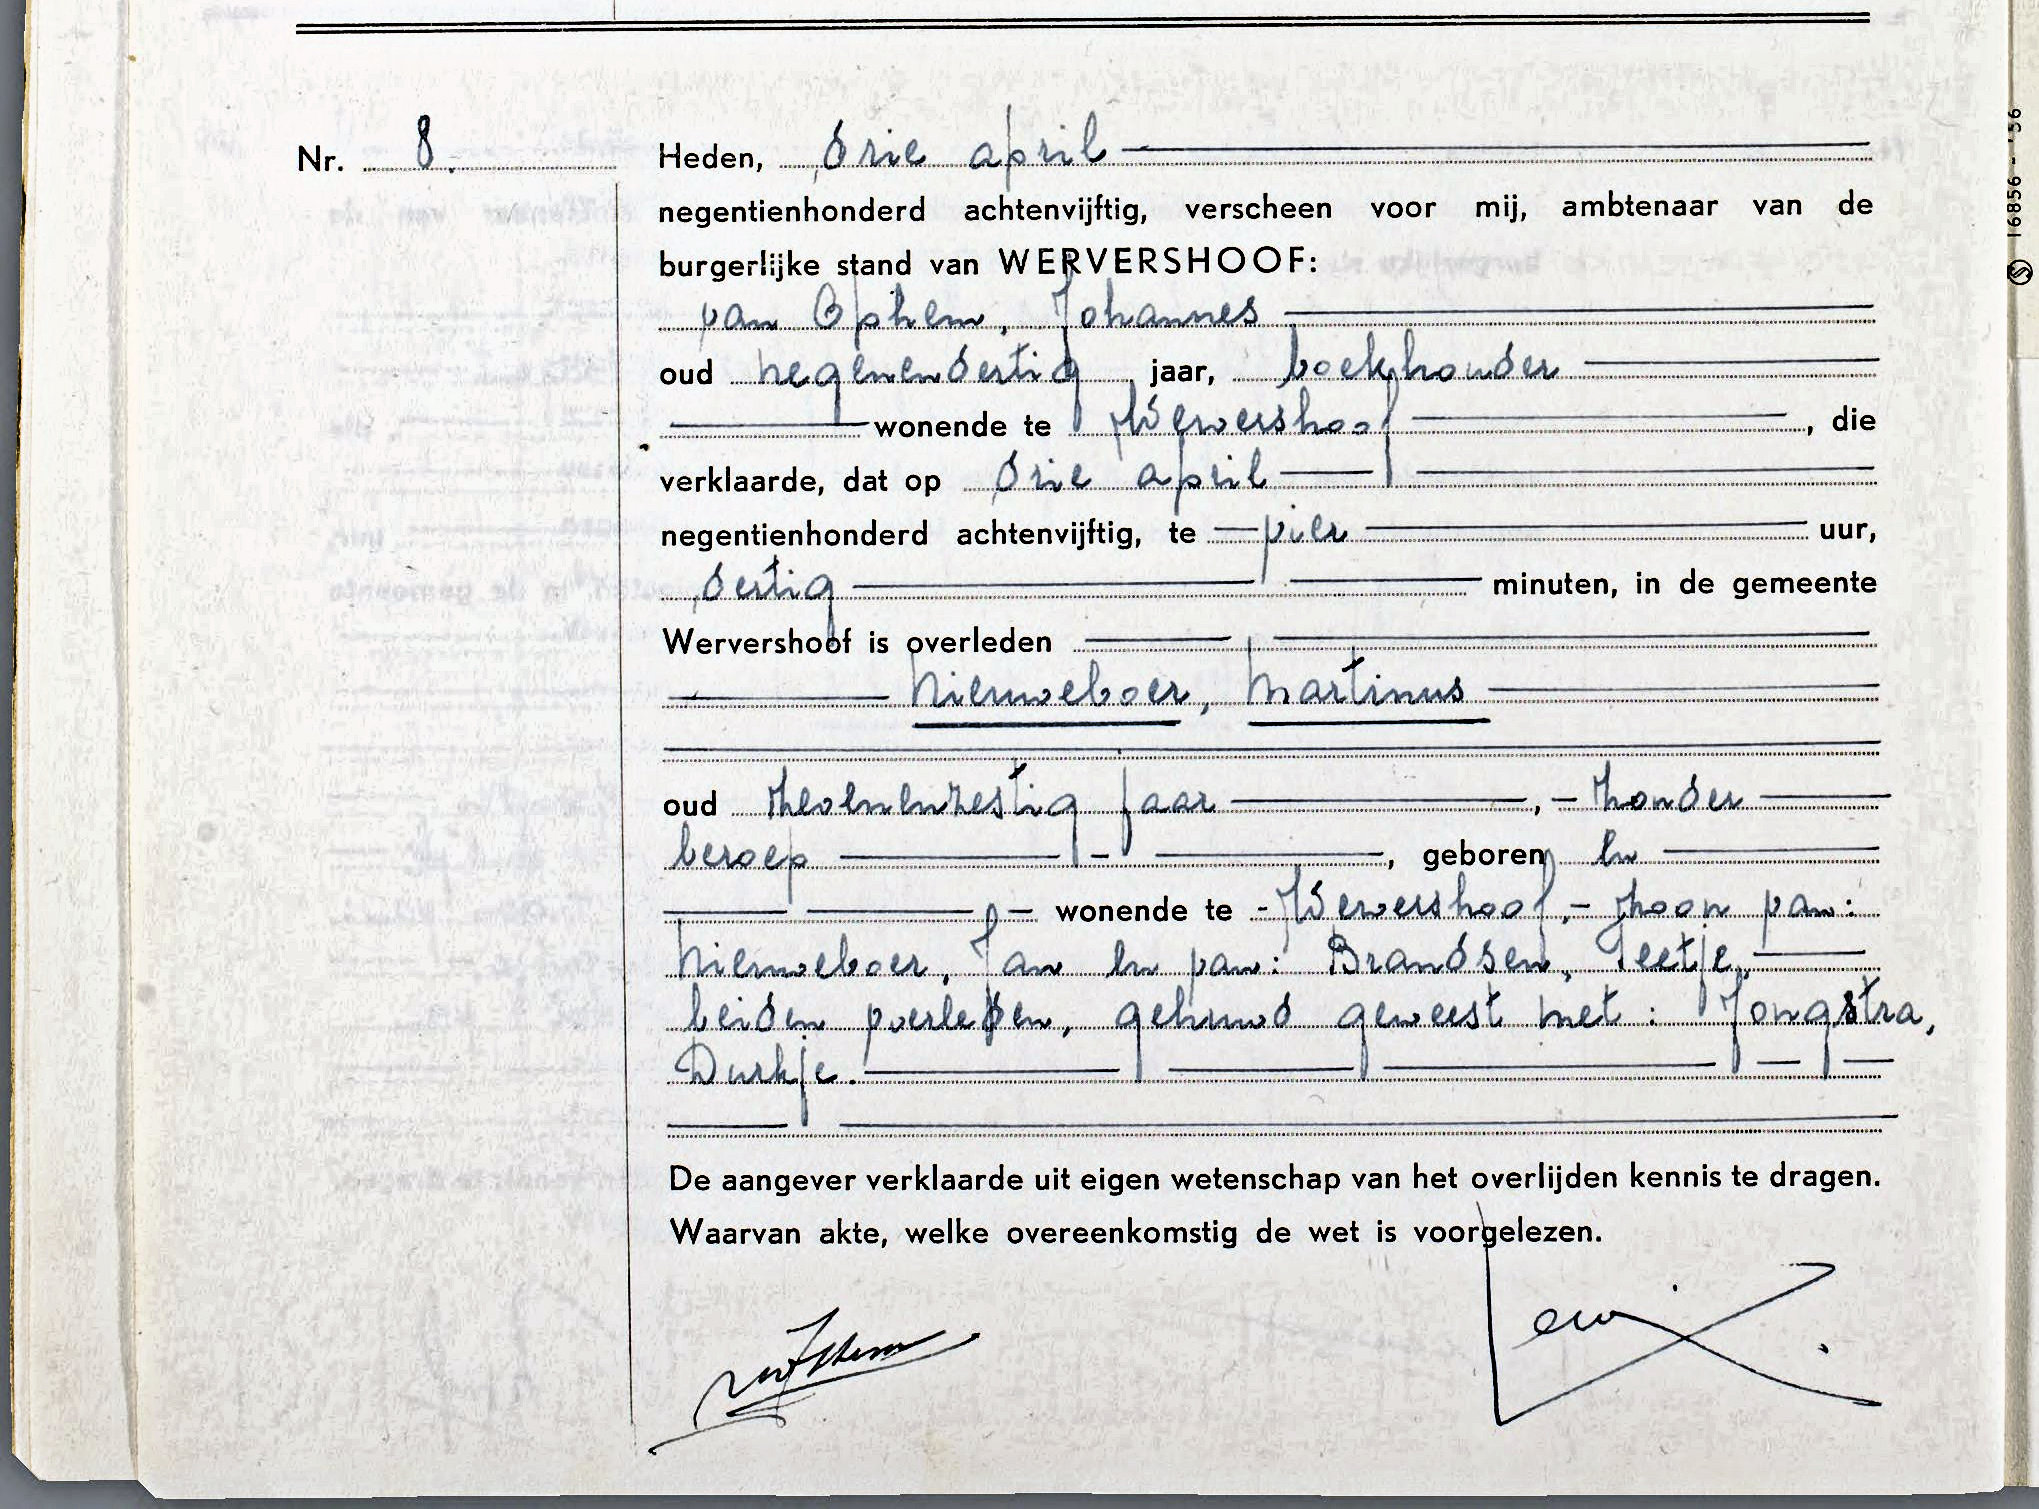 Nr. 8. Heden, drie april
negentienhonderd achtenvijftig, verscheen voor mij, ambtenaar van de
burgerlijke stand van WERVERSHOOF:
van Ophem, Johannes
oud negenendertig jaar, boekhouder
wonende te Wervershoof, die
verklaarde, dat op drie april
negentienhonderd achtenvijftig, te vier uur,
dertig minuten, in de gemeente
Wervershoof is overleden
Nieuweboer, Martinus
oud zevenenzestig jaar, - zonder
beroep - , geboren en
- wonende te - Wervershoof, - zoon van:
Nieuweboer, Jan en van: Brandsen, Teetje,
beiden overleden, gehuwd geweest met: Jongstra,
Durkje.
De aangever verklaarde uit eigen wetenschap van het overlijden kennis te dragen.
Waarvan akte, welke overeenkomstig de wet is voorgelezen.
16856 - '56